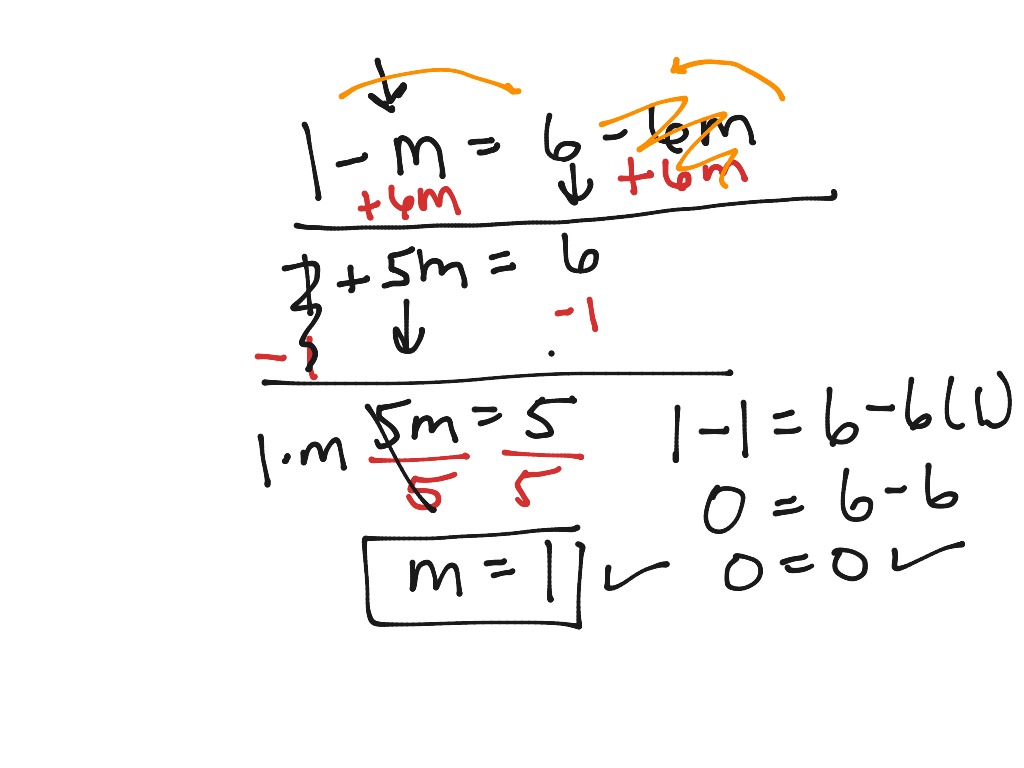 1 - m = 6 - 6m
+6m +6m
1 + 5m = 6
- 1 - 1
1·m 5m = 5
5 5
m = 1 ✓
1 - 1 = 6 - 6(1)
0 = 6 - 6
0 = 0 ✓